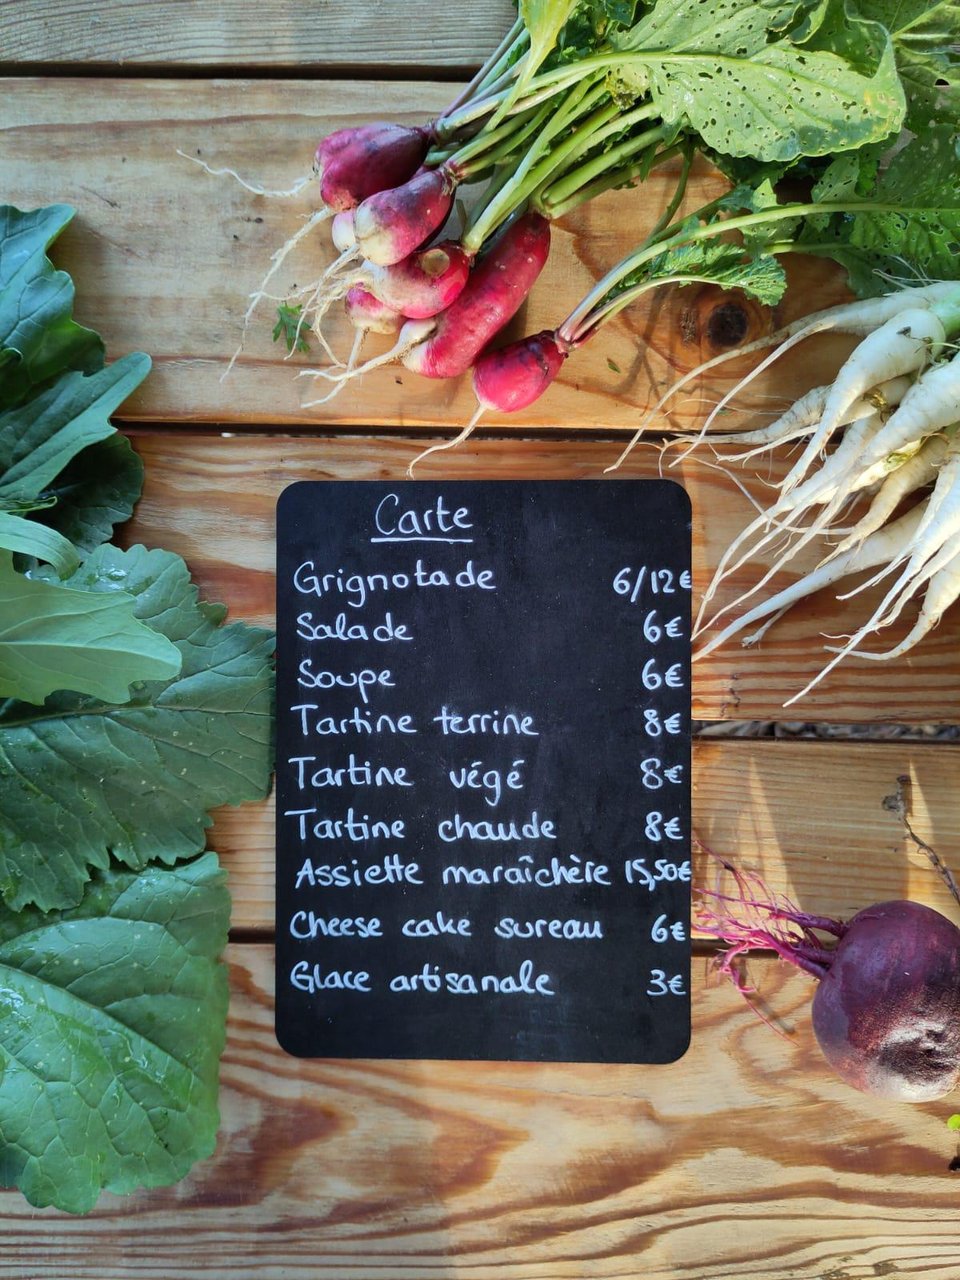 Carte
Grignotade 6/12€
Salade 6€
Soupe 6€
Tartine terrine 8€
Tartine végé 8€
Tartine chaude 8€
Assiette maraîchère 15,50€
Cheese cake sureau 6€
Glace artisanale 3€